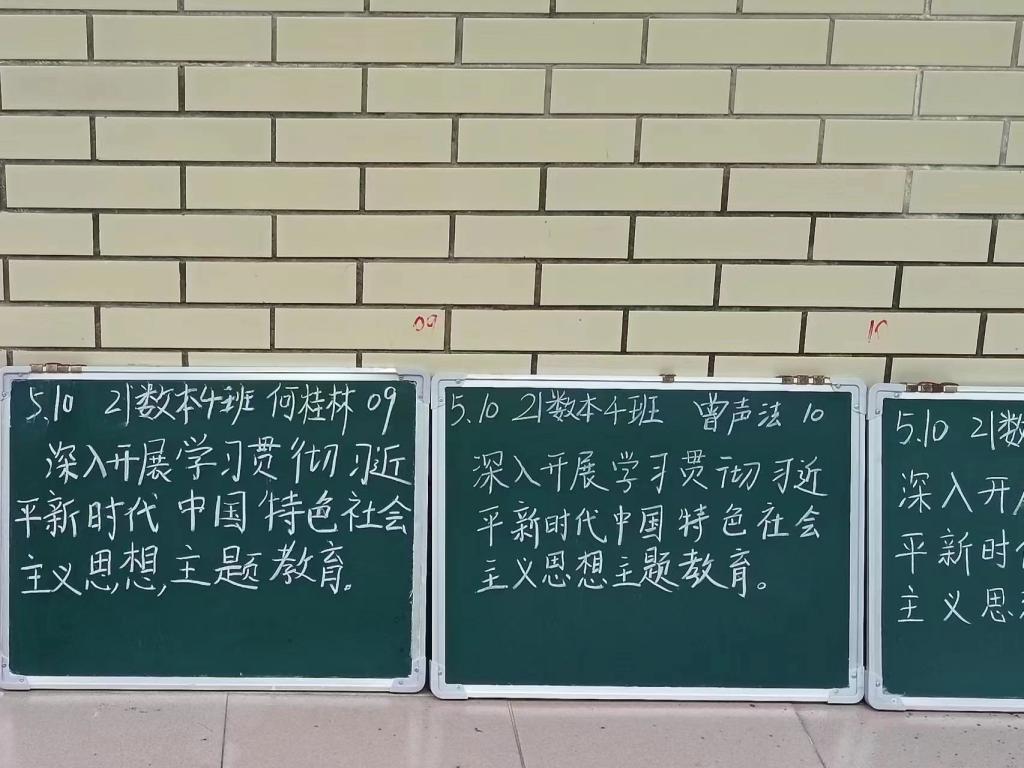 09
10
5.10 21数本4班 何桂林 09
深入开展学习贯彻习近
平新时代中国特色社会
主义思想,主题教育。
5.10 21数本4班 曾声法 10
深入开展学习贯彻习近
平新时代中国特色社会
主义思想主题教育。
5.10 21数
深入开
平新时
主义思